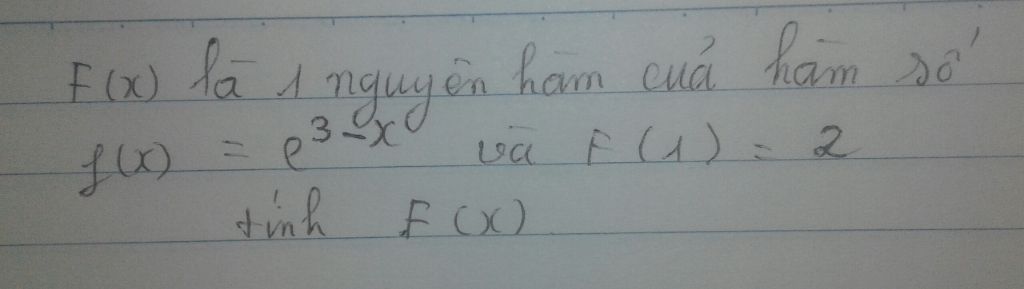 F(x) là 1 nguyên hàm của hàm số
f(x) = e^{3-x} và F(1) = 2
tính F(x)